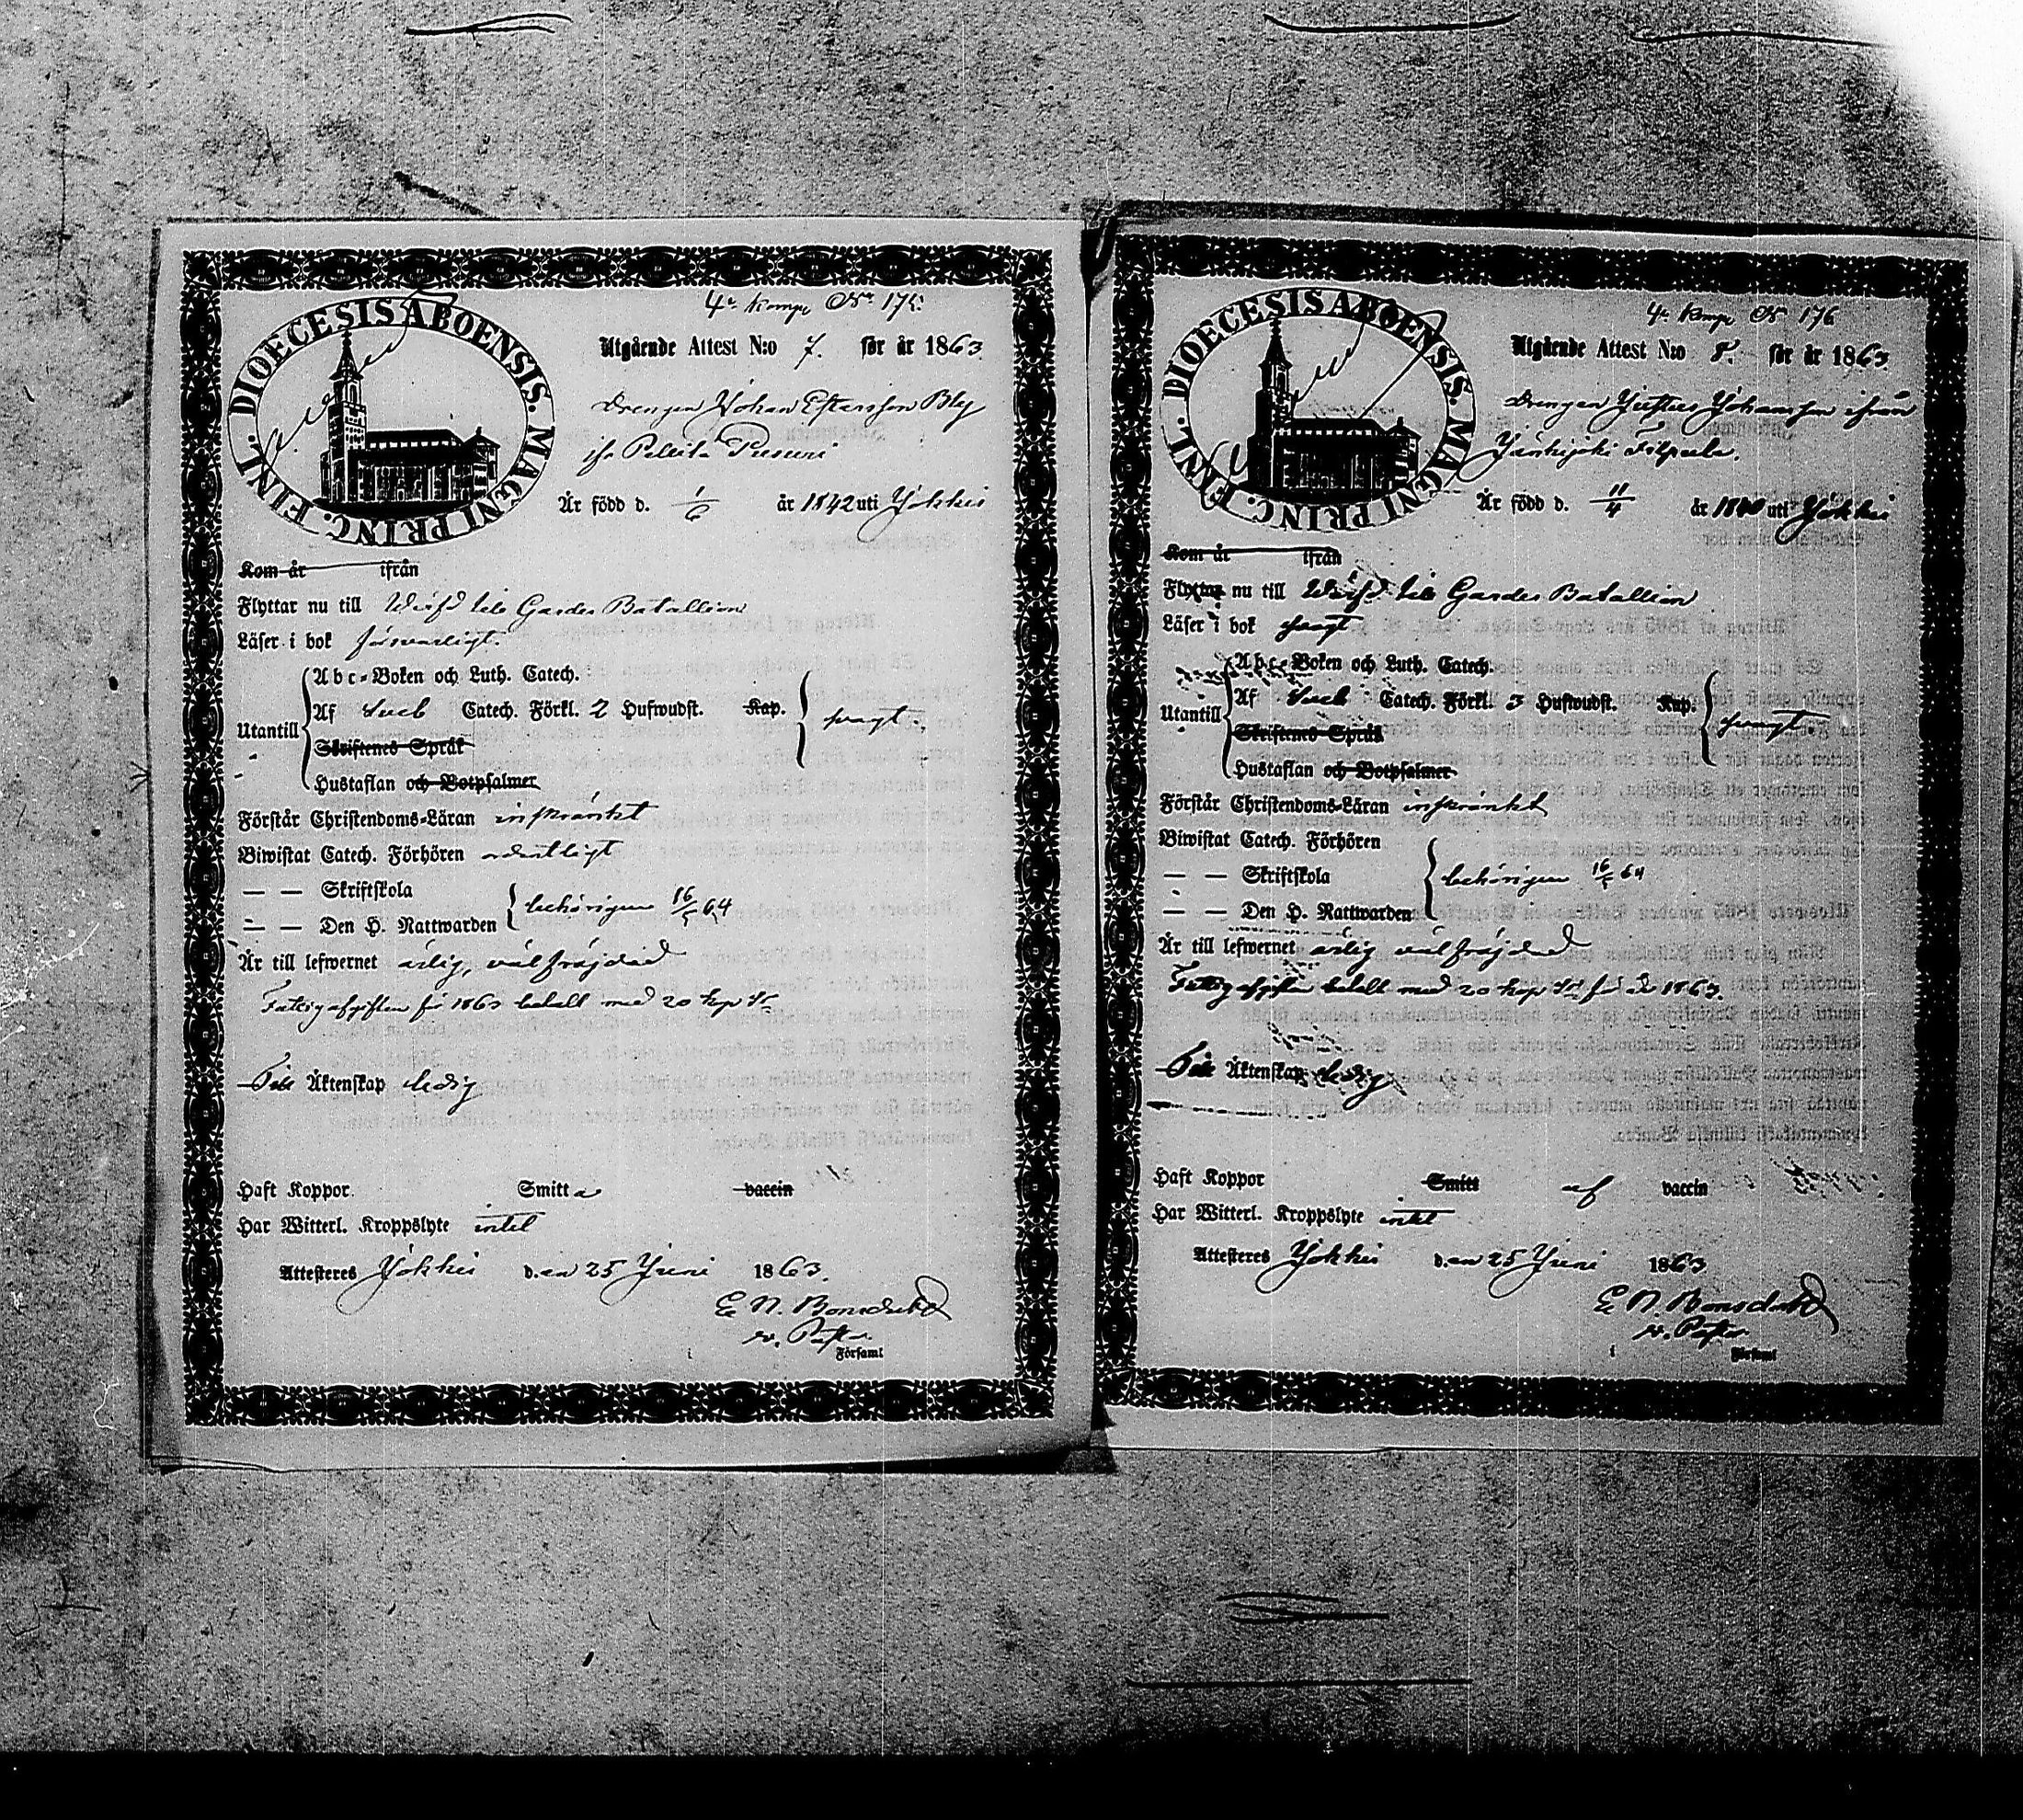 4e Komp No 175.
DIOECESIS ABOENSIS. MAGNI PRINC. FINL.
Utgående Attest N:o 7. för år 1863
Drengen Johan Efraimsson Bly
ifr Pellilä
Är född d. 1/6 år 1842 uti Jokkis
Kom år ifrån
Flyttar nu till Värfd till Gardes Batallion
Läser i bok försvarligt.
Abc-Boken och Luth. Catech.
Utantill Af Sveb Catech. Förkl. 2 Hufwudst. Kap. svagt.
Skriftenes Språk
Hustaflan och Botpsalmer
Förstår Christendoms-Läran inskränkt
Biwistat Catech. Förhören ordentligt
— — Skriftskola
— — Den H. Nattwarden behörigen 16/5 64
Är till lefwernet ärlig, välfräjdad
Fattigafgiften för 1863 betalt med 20 kop Sr
Till Äktenskap ledig
Haft Koppor. Smitta vaccin
Har Witterl. Kroppslyte intet
Attesteres Jokkis d.en 25 Juni 1863.
E N. Bonsdorff
v. Pastor
i Församl
4e Komp No 176
DIOECESIS ABOENSIS. MAGNI PRINC. FINL.
Utgående Attest N:o 8. för år 1863
Drengen Justus Johansson ifrån
Jänhijoki Filpula.
Är född d. 11/4 år 1840 uti Jokkis
Kom år ifrån
Flyttar nu till Värfd till Gardes Batallion
Läser i bok svagt
Abc-Boken och Luth. Catech.
Utantill Af Sveb Catech. Förkl. 3 Hufwudst. Kap. svagt
Skriftenes Språk
Hustaflan och Botpsalmer
Förstår Christendoms-Läran inskränkt
Biwistat Catech. Förhören
— — Skriftskola behörigen 16/5 64
— — Den H. Nattwarden
Är till lefwernet ärlig välfräjdad
Fattigafgiften betalt med 20 kop Sr för år 1863.
Till Äktenskap ledig
Haft Koppor Smitt af vaccin
Har Witterl. Kroppslyte intet
Attesteres Jokkis d.en 25 Juni 1863
E N. Bonsdorff
v. Pastor
i Församl